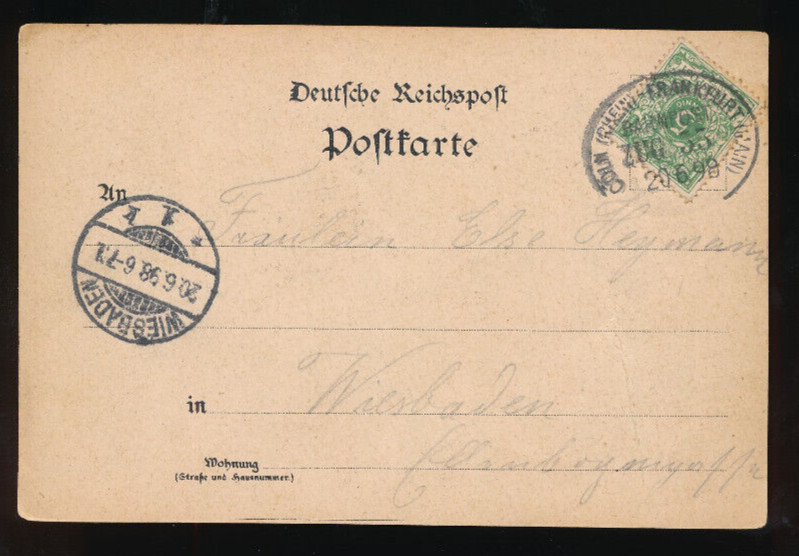 Deutsche Reichspost
Postkarte
CÖLN (RHEIN)-FRANKFURT (MAIN)
ZUG
20 6 98
An
Fräulein Else Heymann
* 1 k
20.6.98. 6-7.N
WIESBADEN
in Wiesbaden
Wohnung Ellenbogengasse
(Straße und Hausnummer.)